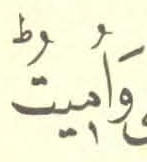 وَأُمِيتُ ؕ